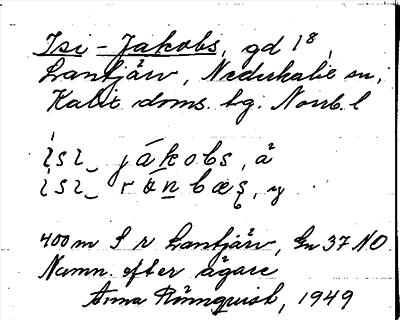 Isi-Jakobs, gd 1⁸,
Lantjärv, Nederkalix sn,
Kalix doms. bg. Norrb. l
ɩsɩ_ jákobs, å
ɩsɩ_ rön bæ, y
400 m S r Lantjärv, En 37 NO
Namn. efter ägare
Anna Rönnquist, 1949